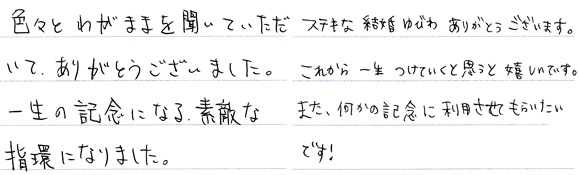 色々と わがままを聞いていただ
いて、ありがとうございました。
一生の記念になる、素敵な
指環になりました。
ステキな 結婚 ゆびわ ありがとうございます。
これから 一生 つけていくと思うと 嬉しいです。
また、何かの記念に 利用させてもらいたい
です!